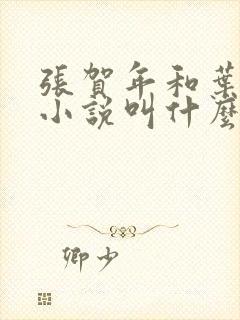 張賀年和葉
小說叫什麼
卿少